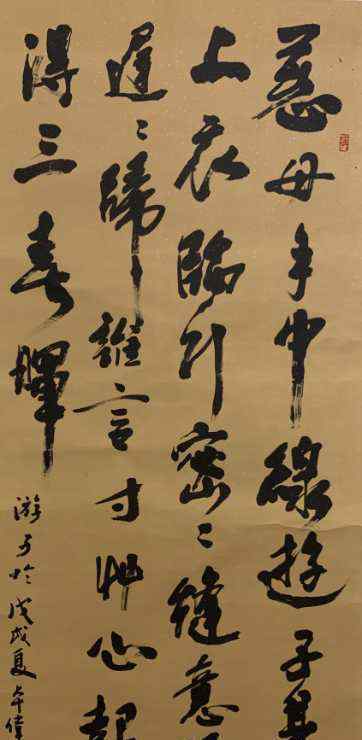 慈母手中線遊子身
上衣臨行密〻縫意
遲〻歸誰言寸艸心報
得三春暉
游子吟戊戌夏